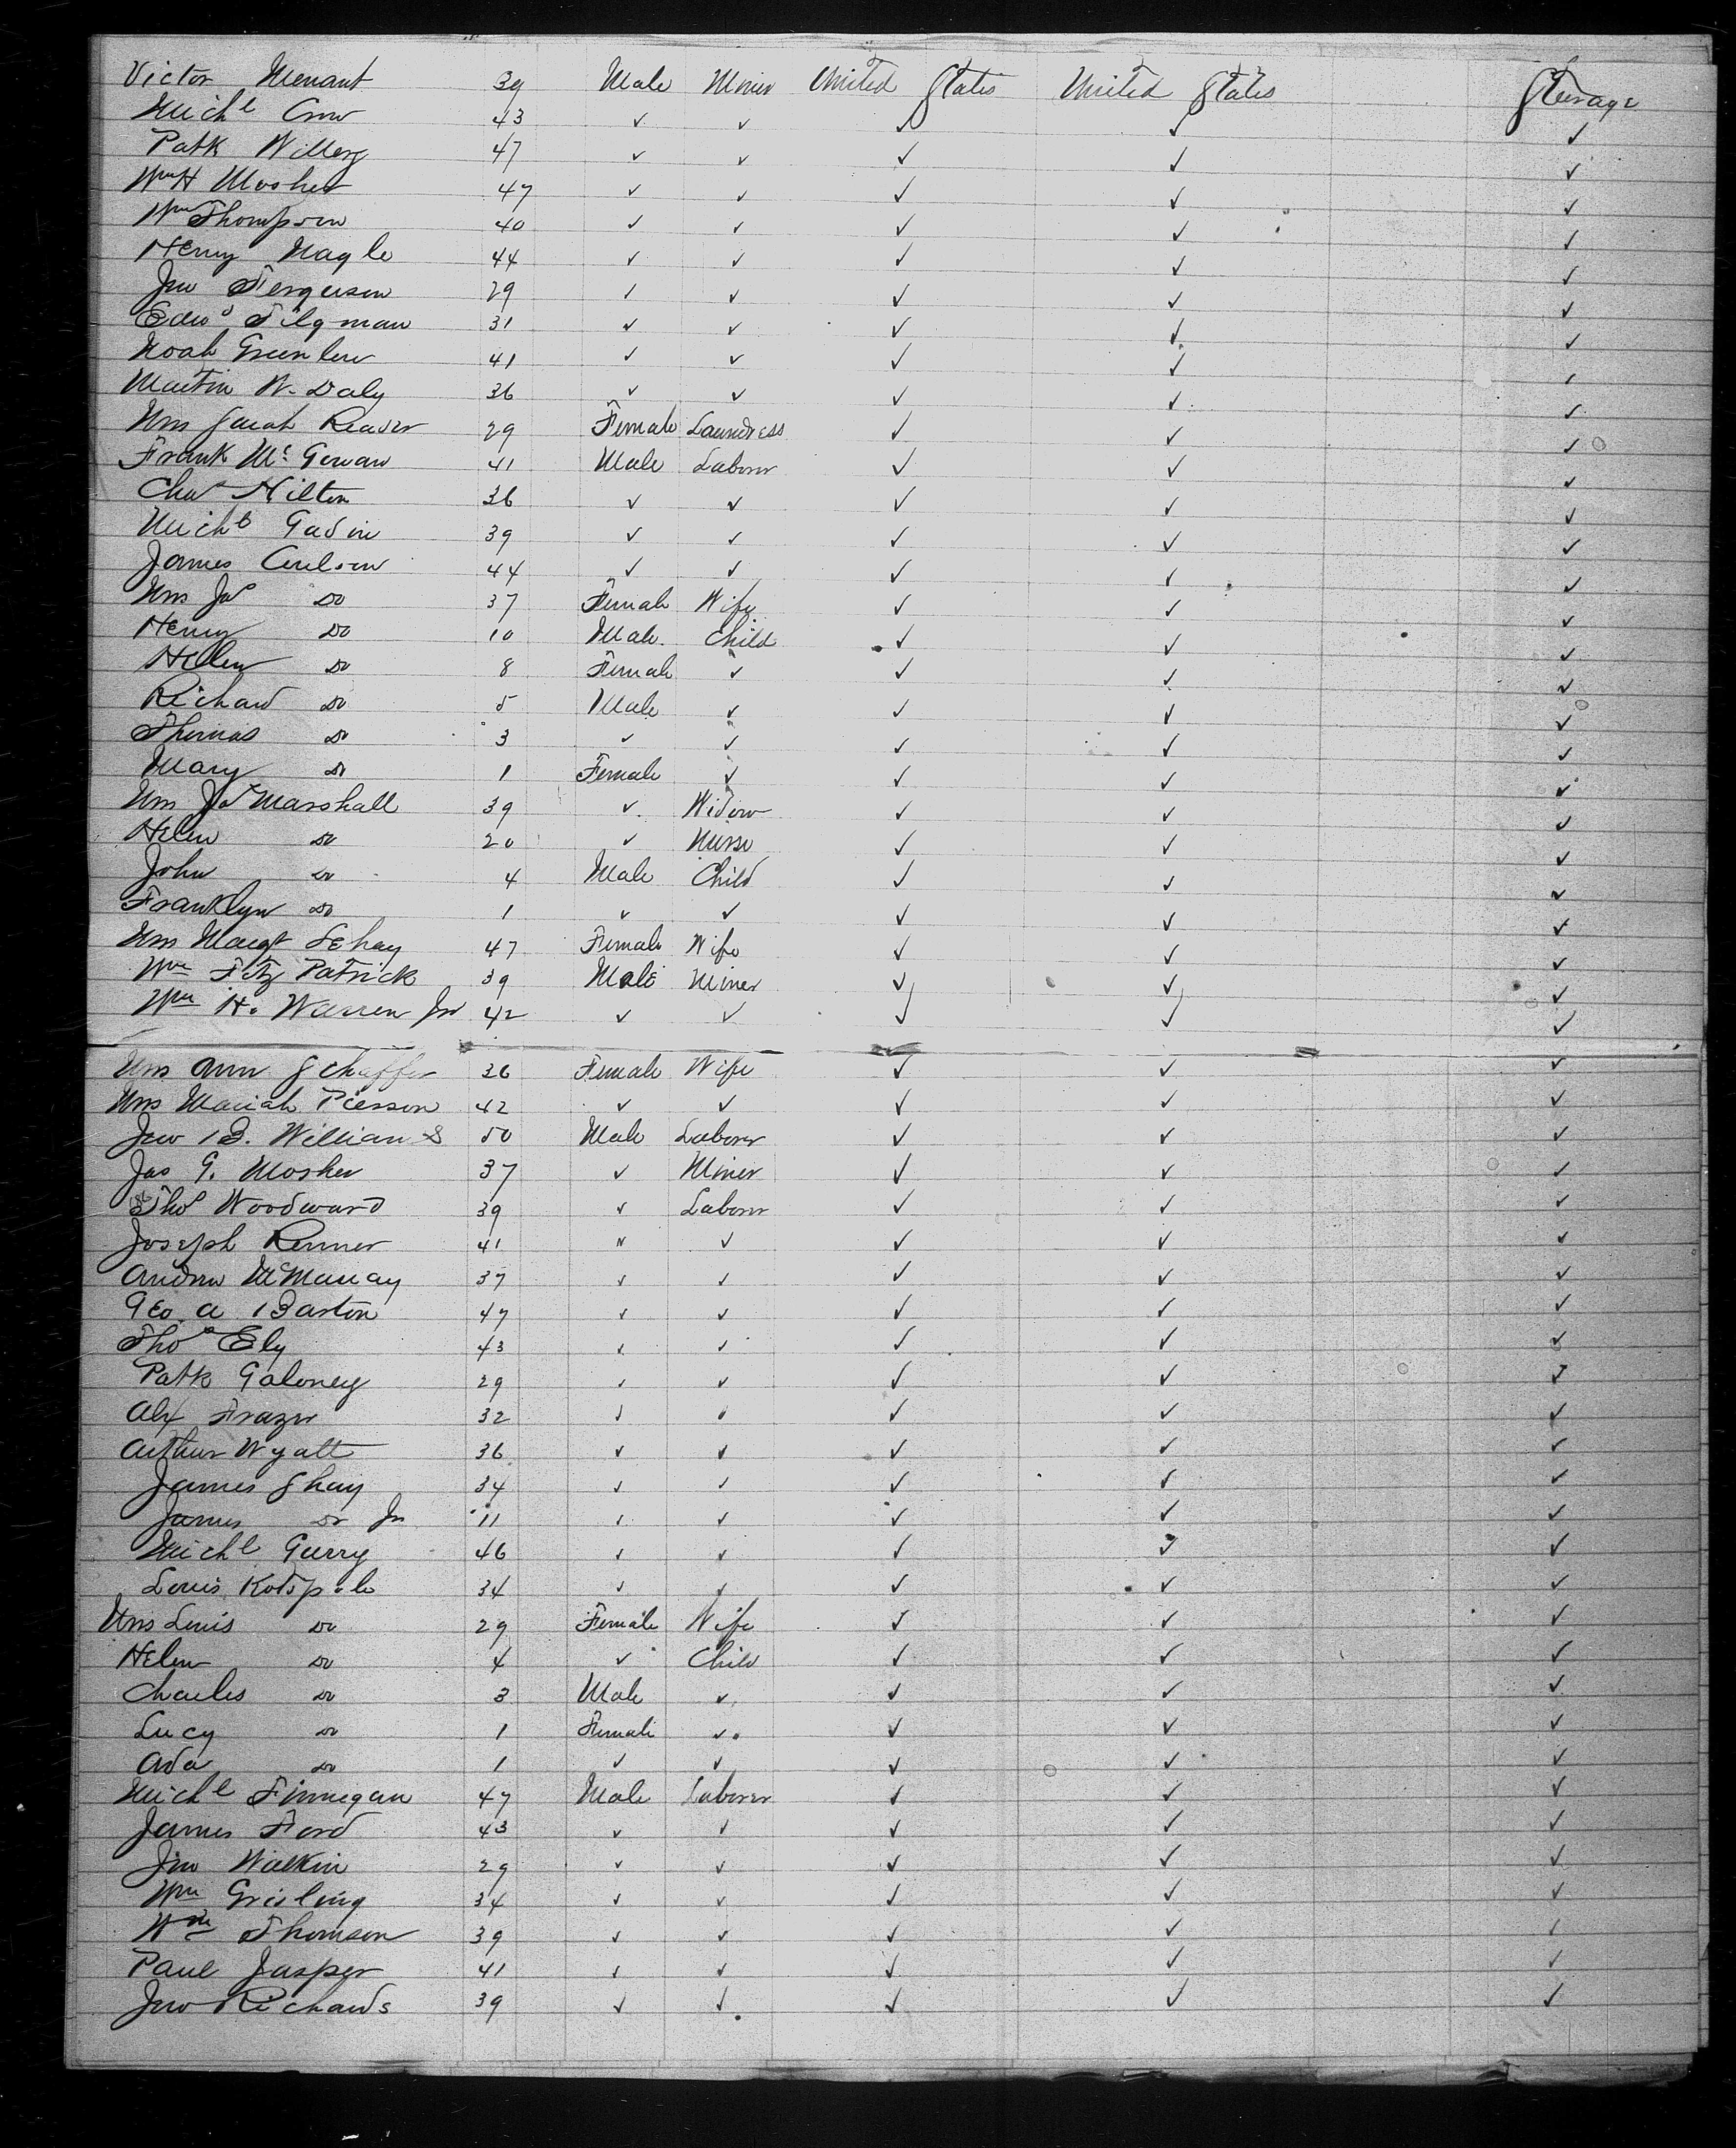 Victor Menant 39 Male Miner United States United States Steerage
Michl Crow 43 ✓ ✓ ✓ ✓ ✓
Patk Willery 47 ✓ ✓ ✓ ✓ ✓
Wm H Mosher 47 ✓ ✓ ✓ ✓ ✓
Wm Thompson 40 ✓ ✓ ✓ ✓ ✓
Henry Nagle 44 ✓ ✓ ✓ ✓ ✓
Jno Ferguson 29 ✓ ✓ ✓ ✓ ✓
Edwd Tilgman 31 ✓ ✓ ✓ ✓ ✓
Noah Greenlew 41 ✓ ✓ ✓ ✓ ✓
Martin W. Daly 36 ✓ ✓ ✓ ✓ ✓
Mrs Sarah Reaver 29 Female Laundress ✓ ✓ ✓
Frank Mc Gowan 41 Male Laborer ✓ ✓ ✓
Chas Hilton 36 ✓ ✓ ✓ ✓ ✓
Michl Gavin 39 ✓ ✓ ✓ ✓ ✓
James Carlson 44 ✓ ✓ ✓ ✓ ✓
Mrs Jas Do 37 Female Wife ✓ ✓ ✓
Henry Do 10 Male Child ✓ ✓ ✓
Hellen Do 8 Female ✓ ✓ ✓ ✓
Richard Do 5 Male ✓ ✓ ✓ ✓
Thomas Do 3 ✓ ✓ ✓ ✓ ✓
Mary Do 1 Female ✓ ✓ ✓ ✓
Mrs Js Marshall 39 ✓ Widow ✓ ✓ ✓
Helen Do 20 ✓ Nurse ✓ ✓ ✓
John Do 4 Male Child ✓ ✓ ✓
Franklyn Do 1 ✓ ✓ ✓ ✓ ✓
Mrs Margt Lehay 47 Female Wife ✓ ✓ ✓
Wm Fitz Patrick 39 Male Miner ✓ ✓ ✓
Wm H. Warren Jr 42 ✓ ✓ ✓ ✓ ✓
Mrs Ann Schaffer 36 Female Wife ✓ ✓ ✓
Mrs Mariah Pierson 42 ✓ ✓ ✓ ✓ ✓
Jno B. Williams 50 Male Laborer ✓ ✓ ✓
Jas G. Mosher 37 ✓ Miner ✓ ✓ ✓
Thos Woodward 39 ✓ Laborer ✓ ✓ ✓
Joseph Renner 41 " ✓ ✓ ✓ ✓
Andrew McManay 37 ✓ ✓ ✓ ✓ ✓
Geo A Barton 47 ✓ ✓ ✓ ✓ ✓
Thos Ely 43 ✓ ✓ ✓ ✓ ✓
Patk Galoney 29 ✓ ✓ ✓ ✓ ✓
Alx Frazer 32 ✓ ✓ ✓ ✓ ✓
Arthur Wyatt 36 ✓ ✓ ✓ ✓ ✓
James Shay 34 ✓ ✓ ✓ ✓ ✓
James Do Jr 11 ✓ ✓ ✓ ✓ ✓
Michl Gurry 46 ✓ ✓ ✓ ✓ ✓
Louis 34 ✓ ✓ ✓ ✓ ✓
Mrs Louis Do 29 Female Wife ✓ ✓ ✓
Helen Do 4 ✓ Child ✓ ✓ ✓
Charles Do 3 Male ✓ ✓ ✓ ✓
Lucy Do 1 Female ✓ ✓ ✓ ✓
Ada Do 1 ✓ ✓ ✓ ✓ ✓
Michl Finnegan 47 Male Laborer ✓ ✓ ✓
James Ford 43 ✓ ✓ ✓ ✓ ✓
Jno Walkin 29 ✓ ✓ ✓ ✓ ✓
Wm Grisling 34 ✓ ✓ ✓ ✓ ✓
Wm Thomson 39 ✓ ✓ ✓ ✓ ✓
Paul Jasper 41 ✓ ✓ ✓ ✓ ✓
Jno Richards 39 ✓ ✓ ✓ ✓ ✓